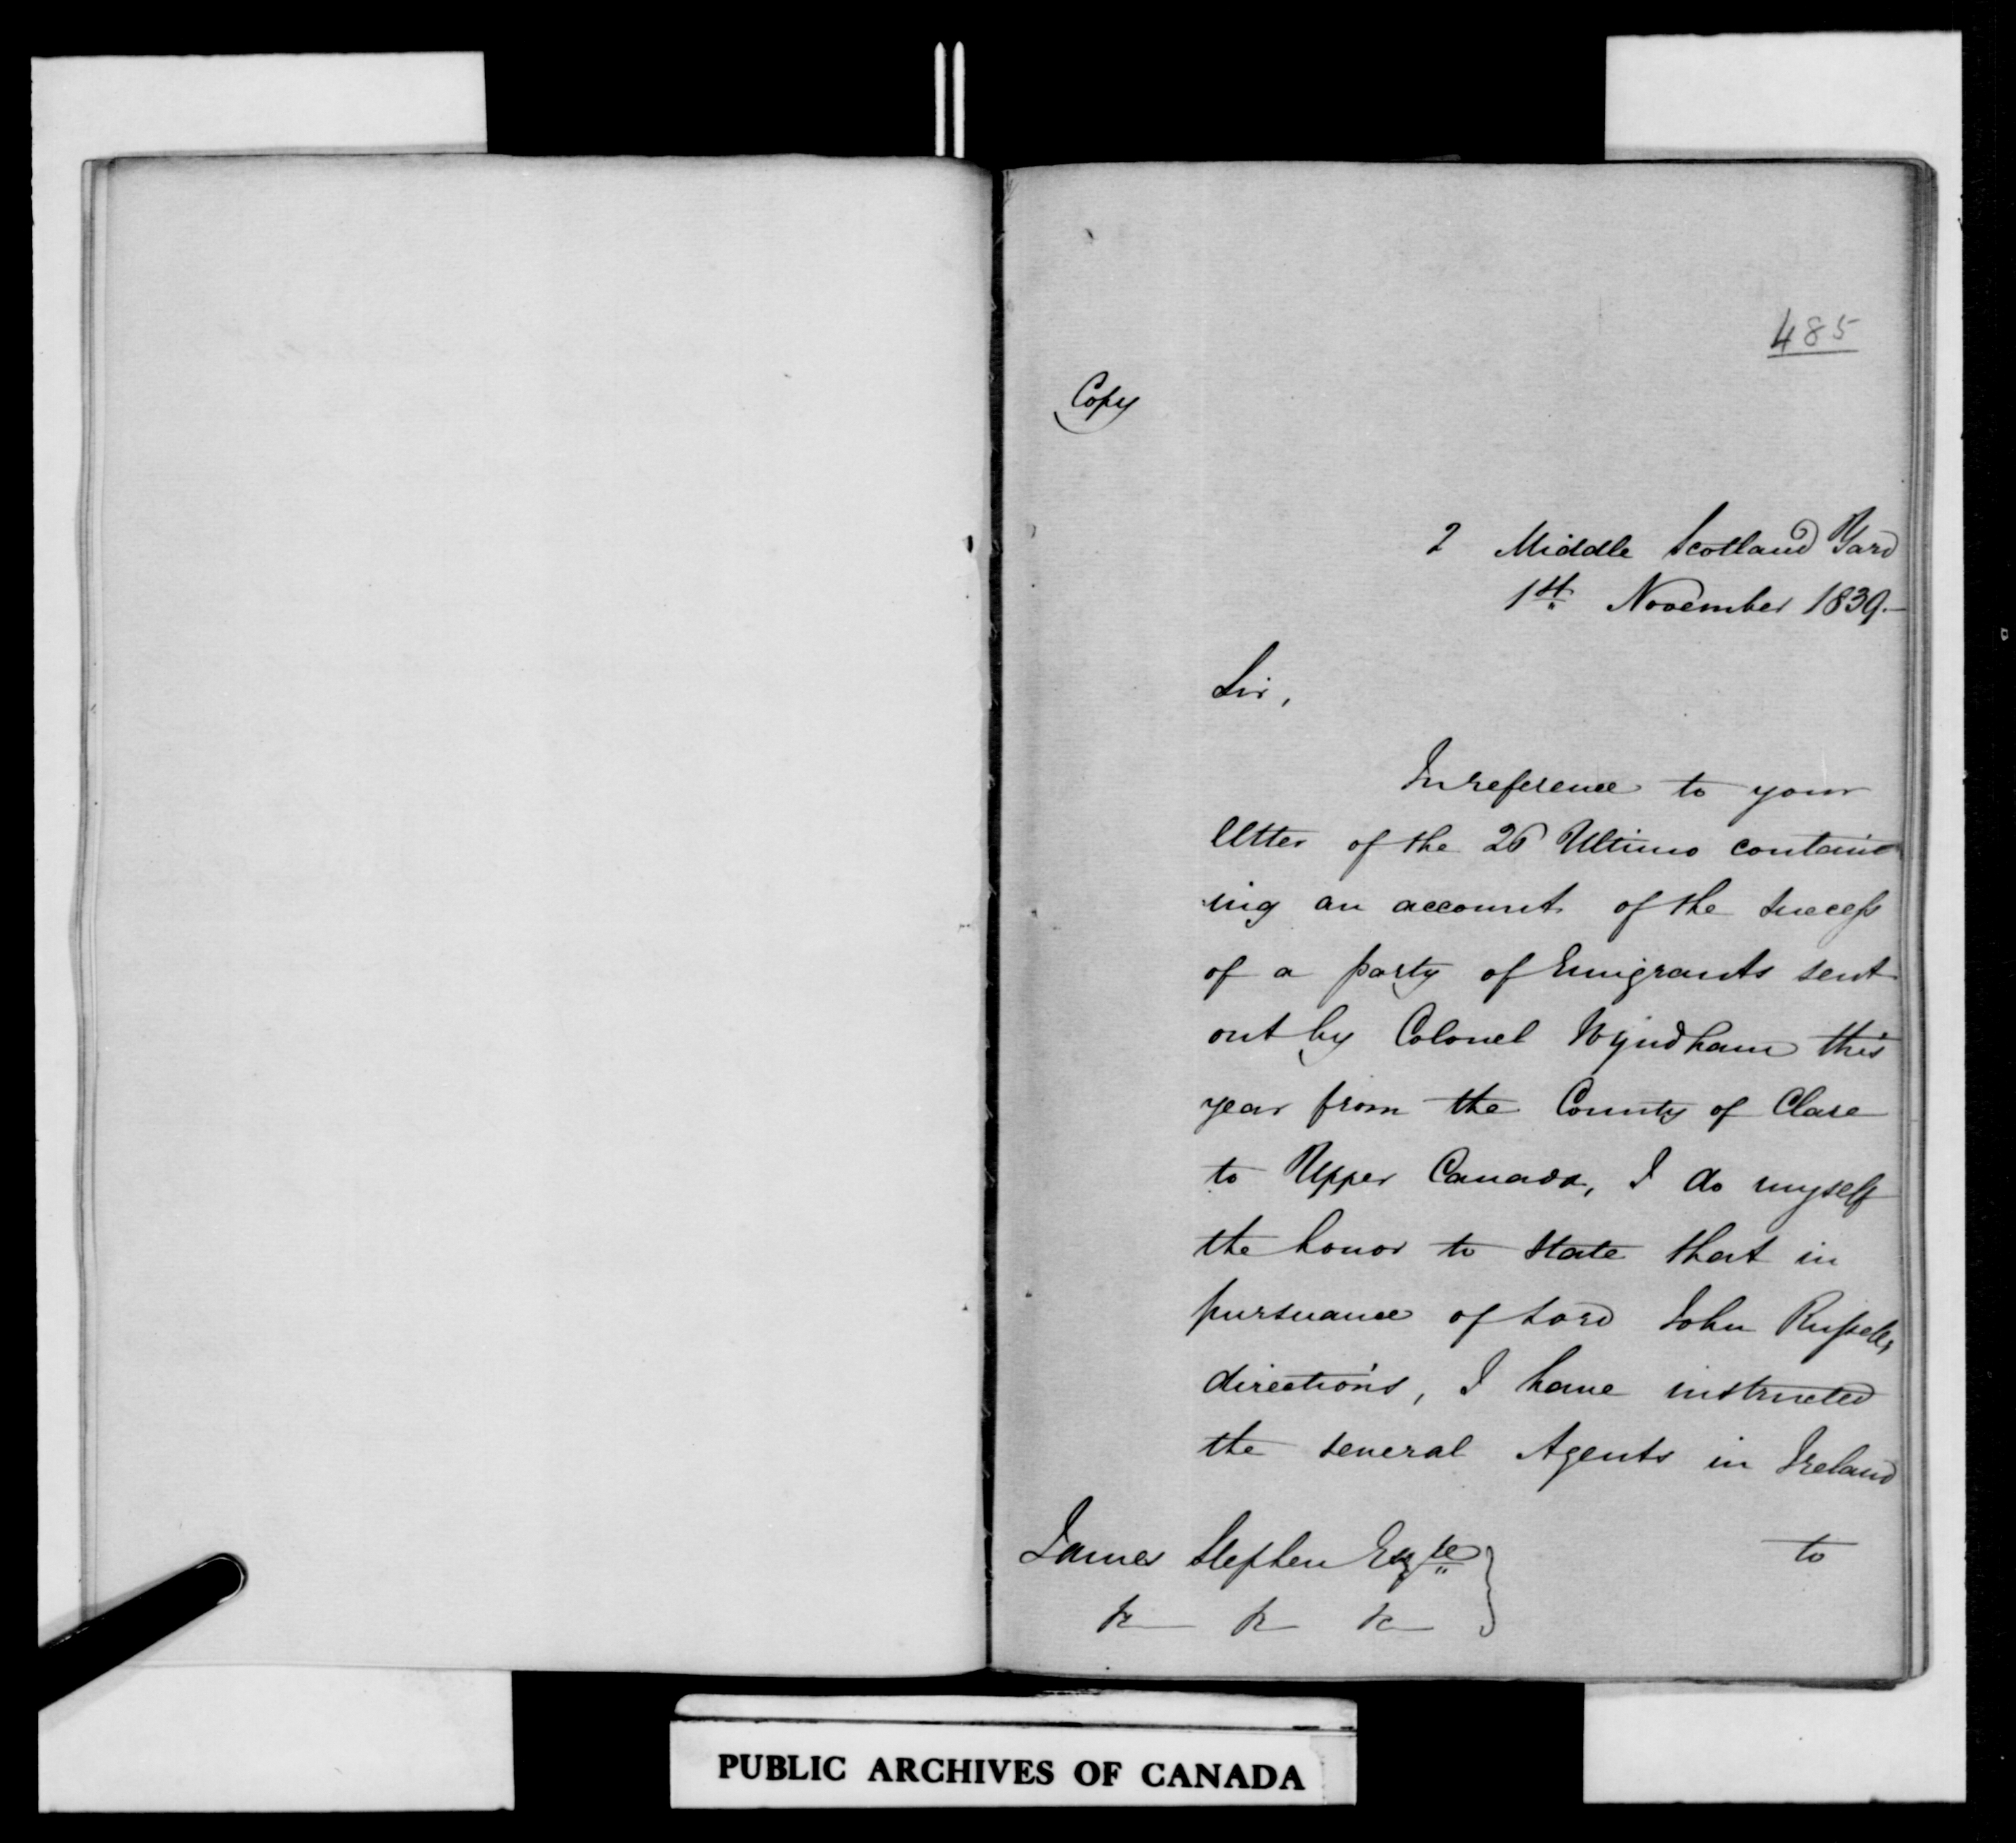 485
Copy
2 Middle Scotland Yard
1st November 1839.
Sir,
In reference to your
letter of the 26 Ultimo contain
ing an account of the success
of a party of Emigrants sent
out by Colonel Wyndham this
year from the County of Clare
to Upper Canada, I do myself
the honor to state that in
pursuance of Lord John Russells
directions, I have instructed
the several Agents in Ireland
to
James Stephen Esqre
&c &c &c
PUBLIC ARCHIVES OF CANADA